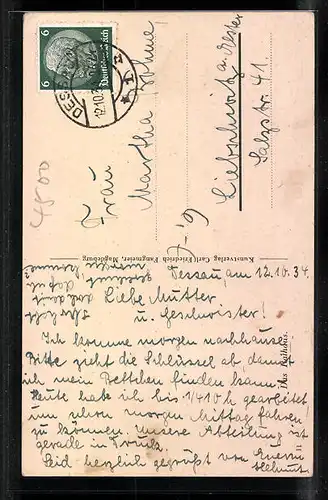 6
6
Deutsches Reich
DESSAU
12.10.3
4800
Frau
Martha Böhme
Liebschwitz a. Elster
Salzstr. 41.
Kunstverlag Carl Friedrich Fangmeier, Magdeburg
Das Rathaus.
Dessau, am 12.10.34.
Liebe Mutter
u. Geschwister!
Ich komme morgen nachhause.
Bitte zieht die Schlüssel ab, damit
ich mein Bettchen finden kann.
Heute habe ich bis ½10 h gearbeitet
um schon morgen Mittag fahren
zu können. Unsere Abteilung ist
gerade in Druck.
Seid herzlich gegrüßt von Euerm
Helmut